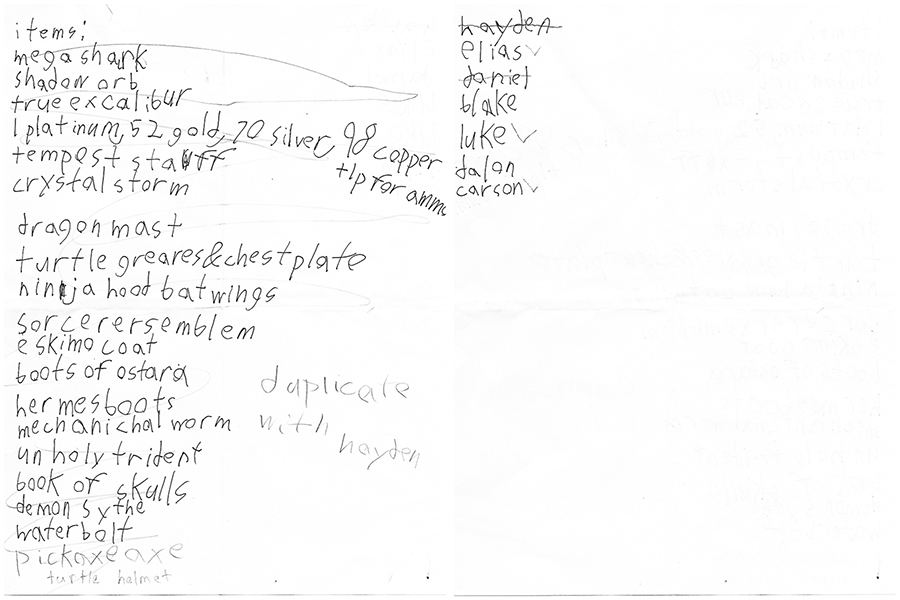 items:
mega shark
shadow orb
true excalibur
1 platinum, 52 gold, 70 silver, 98 copper
+1p for ammo
tempest stauff
crystal storm
dragon mast
turtle greares & chestplate
ninja hood bat wings
sorcerersemblem
eskimo coat
boots of ostara
hermesboots
mechanichal worm
unholy trident
book of skulls
demon sythe
waterbolt
pickaxeaxe
turtle helmet
duplicate
with
hayden
hayden
elias ✓
daniel
blake
luke ✓
dalan
carson ✓